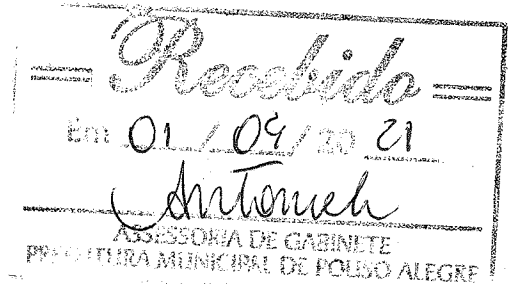 Recebido
Em 01 / 04 / 20 21
ASSESSORIA DE GABINETE
PREFEITURA MUNICIPAL DE POUSO ALEGRE